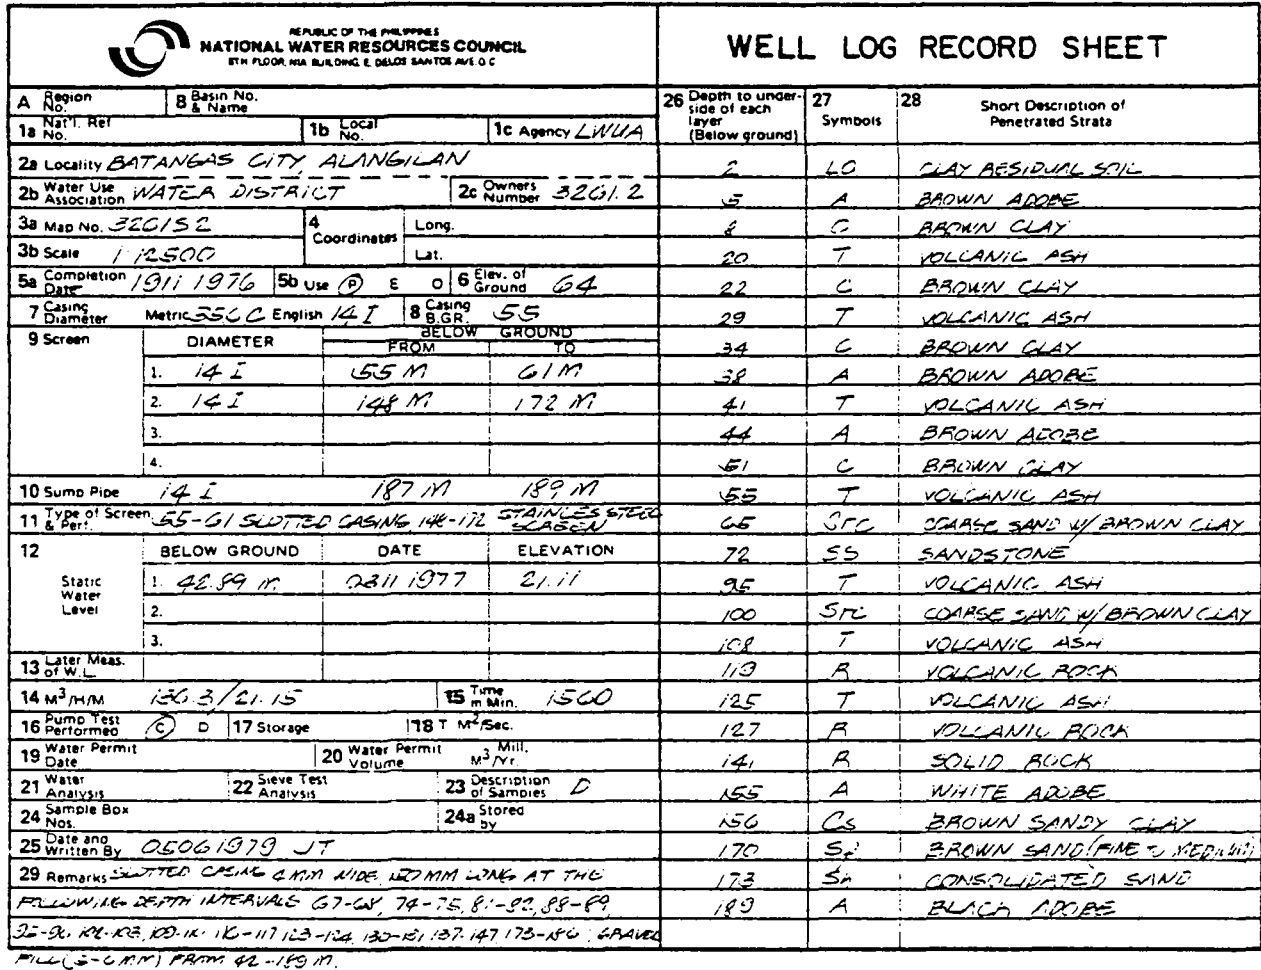 REPUBLIC OF THE PHILIPPINES
NATIONAL WATER RESOURCES COUNCIL
8TH FLOOR, NIA BUILDING, E. DELOS SANTOS AVE. Q C
WELL LOG RECORD SHEET
A Region No. B Basin No. & Name
1a Nat'l. Ref No. 1b Local No. 1c Agency LWUA
2a Locality BATANGAS CITY, ALANGILAN
2b Water Use Association WATER DISTRICT 2c Owners Number 32G1.2
3a Map No. 32G1S2 4 Coordinates Long.
3b Scale 1 12500 Lat.
5a Completion Date 1911 1976 5b Use P E O 6 Elev. of Ground 64
7 Casing Diameter Metric 356 C English 14 I 8 Casing B.G.R. 55
9 Screen DIAMETER BELOW GROUND FROM TO
1. 14 I 55 M 61 M
2. 14 I 148 M 172 M
3.
4.
10 Sump Pipe 14 I 187 M 189 M
11 Type of Screen & Perf. 55-61 SLOTTED CASING 148-172 STAINLES STEEL SCREEN
12 Static Water Level BELOW GROUND DATE ELEVATION
1. 42.89 m 0311 1977 21.11
2.
3.
13 Later Meas. of W.L.
14 M³/H/M 130.3/21.15 15 Time m Min. 1560
16 Pump Test Performed C D 17 Storage 18 T M²/Sec.
19 Water Permit Date 20 Water Permit Volume Mill. M³/Yr.
21 Water Analysis 22 Sieve Test Analysis 23 Description of Samples D
24 Sample Box Nos. 24a Stored by
25 Date and Written By 05061979 JT
29 Remarks SLOTTED CASING 4 MM WIDE, 150 MM LONG AT THE
FOLLOWING DEPTH INTERVALS 67-68, 74-75, 81-82, 88-89,
95-96, 102-103, 109-110, 116-117, 123-124, 130-131, 137-147, 173-186; GRAVEL
FILL (3-6 MM) FROM 42-189 M.
26 Depth to under-side of each layer (Below ground) 27 Symbols 28 Short Description of Penetrated Strata
2 LO CLAY RESIDUAL SOIL
5 A BROWN ADOBE
8 C BROWN CLAY
20 T VOLCANIC ASH
22 C BROWN CLAY
29 T VOLCANIC ASH
34 C BROWN CLAY
38 A BROWN ADOBE
41 T VOLCANIC ASH
44 A BROWN ADOBE
51 C BROWN CLAY
55 T VOLCANIC ASH
65 Src COARSE SAND W/ BROWN CLAY
72 SS SANDSTONE
95 T VOLCANIC ASH
100 Src COARSE SAND W/ BROWN CLAY
108 T VOLCANIC ASH
119 R VOLCANIC ROCK
125 T VOLCANIC ASH
127 R VOLCANIC ROCK
141 R SOLID ROCK
155 A WHITE ADOBE
156 Cs BROWN SANDY CLAY
170 Sf BROWN SAND (FINE to MEDIUM)
173 CONSOLIDATED SAND
189 A BLACK ADOBE